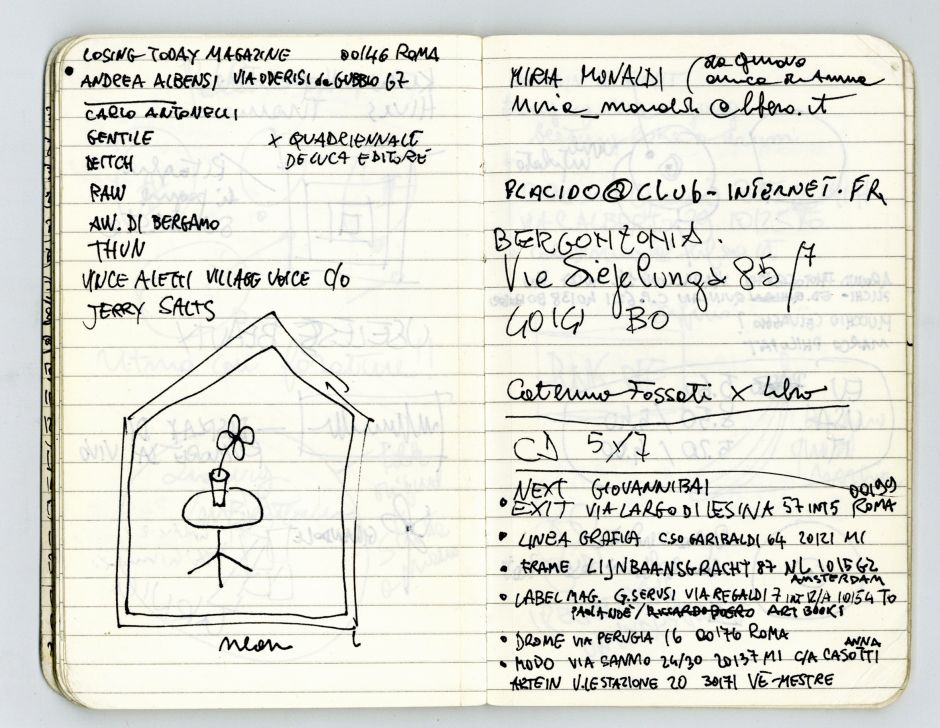 LOSING TODAY MAGAZINE 00146 ROMA
ANDREA ALBENSI VIA ODERISI da GUBBIO 67
CARLO ANTONELLI
GENTILE X QUADRIENNALE
DEITCH DE LUCA EDITORE
RAW
AW. DI BERGAMO
THUN
VINCE ALETTI VILLAGE VOICE C/O
JERRY SALTS
neon
MIRIA MONALDI
Miria_monaldi@libero.it
PLACIDO@CLUB-INTERNET.FR
BERGONZONIA.
Via 85/7
BO
Caterina Fossati x libro
CD 5X7
NEXT GIOVANNI BAI 00199
EXIT VIA LARGO DI LESINA 57 INT5 ROMA
LINEA GRAFICA C.SO GARIBALDI 64 20121 MI
FRAME LIJNBAANSGRACHT 87 NL 1015 GZ
AMSTERDAM
LABEL MAG. G.SERUSI VIA REGALDI 7 INT 12/A 10154 TO
ART BOOKS
DROME VIA PERUGIA 16 00176 ROMA
ANNA
MODO VIA SANMO 24/30 20137 MI C/A CASOTTI
ARTEIN V.LE STAZIONE 20 30171 VE-MESTRE